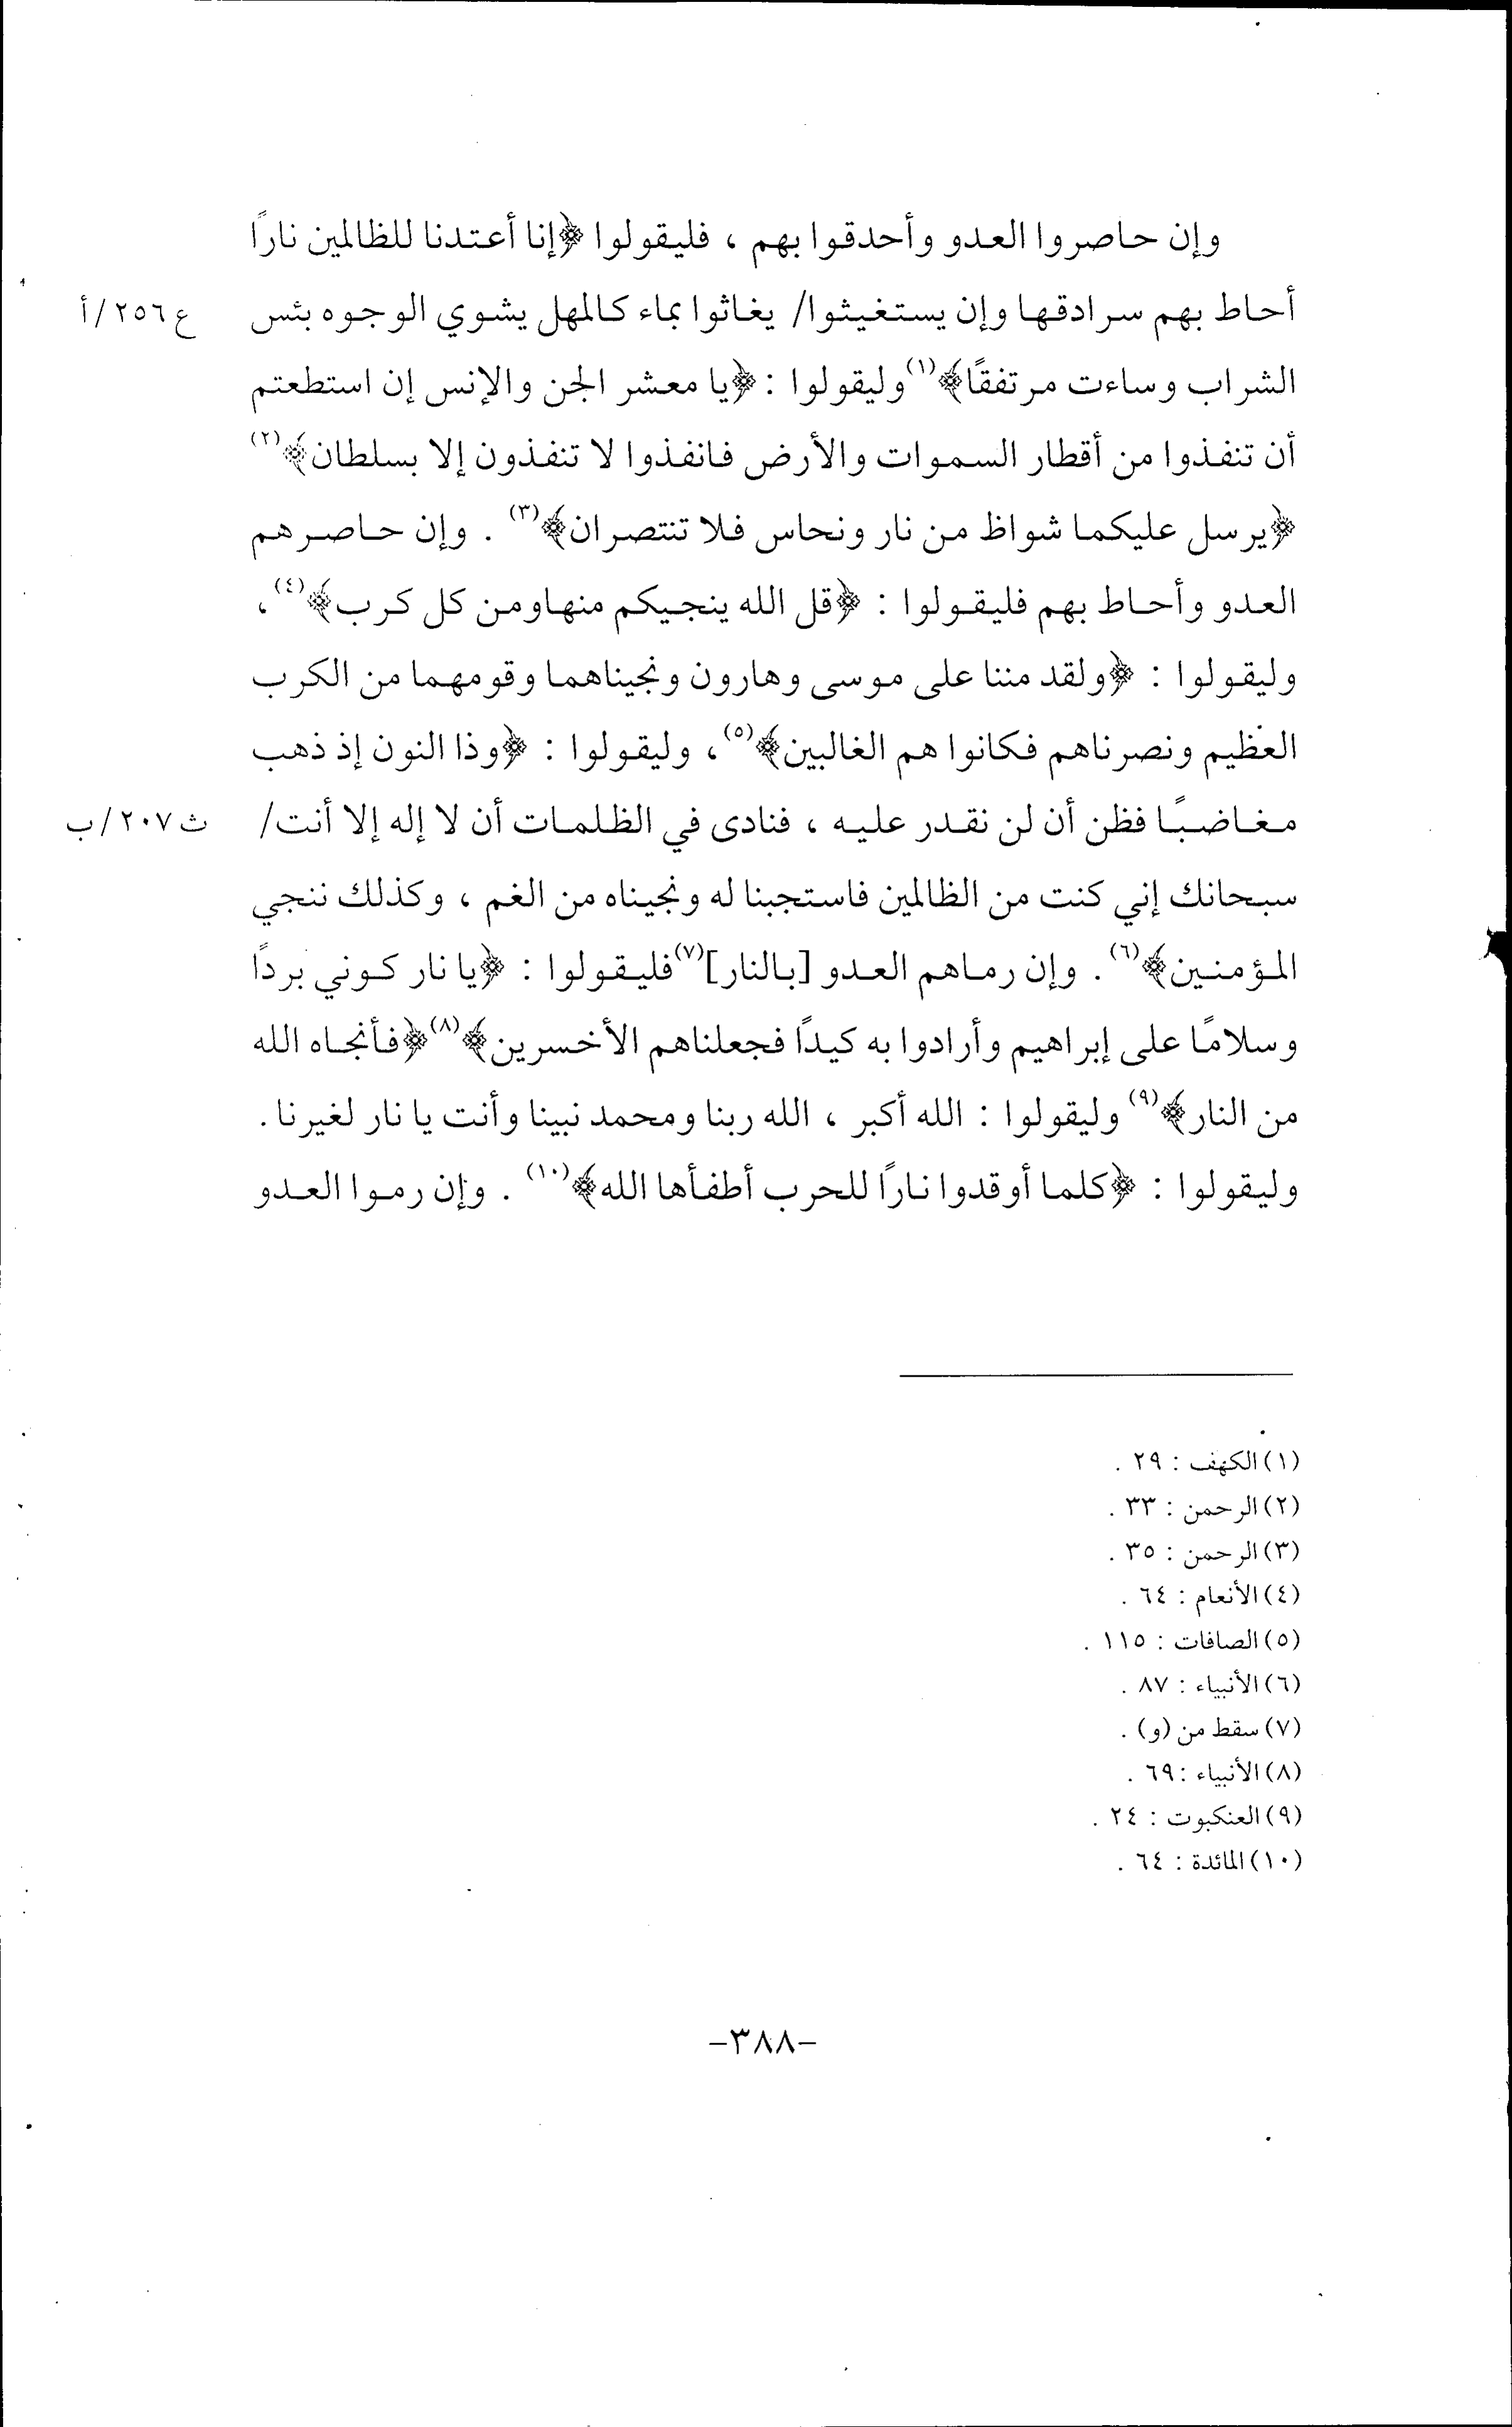 وإن حاصروا العدو وأحدقوا بهم ، فليقولوا ﴿إنا أعتدنا للظالمين نارًا
أحاط بهم سرادقها وإن يستغيثوا/ يغاثوا بماء كالمهل يشوي الوجوه بئس
ع ٢٥٦/أ
الشراب وساءت مرتفقًا﴾(١) وليقولوا : ﴿يا معشر الجن والإنس إن استطعتم
أن تنفذوا من أقطار السموات والأرض فانفذوا لا تنفذون إلا بسلطان﴾(٢)
﴿يرسل عليكما شواظ من نار ونحاس فلا تنتصران﴾(٣) . وإن حاصرهم
العدو وأحاط بهم فليقولوا : ﴿قل الله ينجيكم منهاومن كل كرب﴾(٤) ،
وليقولوا : ﴿ولقد مننا على موسى وهارون ونجيناهما وقومهما من الكرب
العظيم ونصرناهم فكانوا هم الغالبين﴾(٥) ، وليقولوا : ﴿وذا النون إذ ذهب
مغاضبًا فظن أن لن نقدر عليه ، فنادى في الظلمات أن لا إله إلا أنت/
ث ٢٠٧/ب
سبحانك إني كنت من الظالمين فاستجبنا له ونجيناه من الغم ، وكذلك ننجي
المؤمنين﴾(٦) . وإن رماهم العدو [بالنار](٧) فليقولوا : ﴿يا نار كوني بردًا
وسلامًا على إبراهيم وأرادوا به كيدًا فجعلناهم الأخسرين﴾(٨) ﴿فأنجاه الله
من النار﴾(٩) وليقولوا : الله أكبر ، الله ربنا ومحمد نبينا وأنت يا نار لغيرنا .
وليقولوا : ﴿كلما أوقدوا نارًا للحرب أطفأها الله﴾(١٠) . وإن رموا العدو
(١) الكهف : ٢٩ .
(٢) الرحمن : ٣٣ .
(٣) الرحمن : ٣٥ .
(٤) الأنعام : ٦٤ .
(٥) الصافات : ١١٥ .
(٦) الأنبياء : ٨٧ .
(٧) سقط من (و) .
(٨) الأنبياء : ٦٩ .
(٩) العنكبوت : ٢٤ .
(١٠) المائدة : ٦٤ .
-٣٨٨-